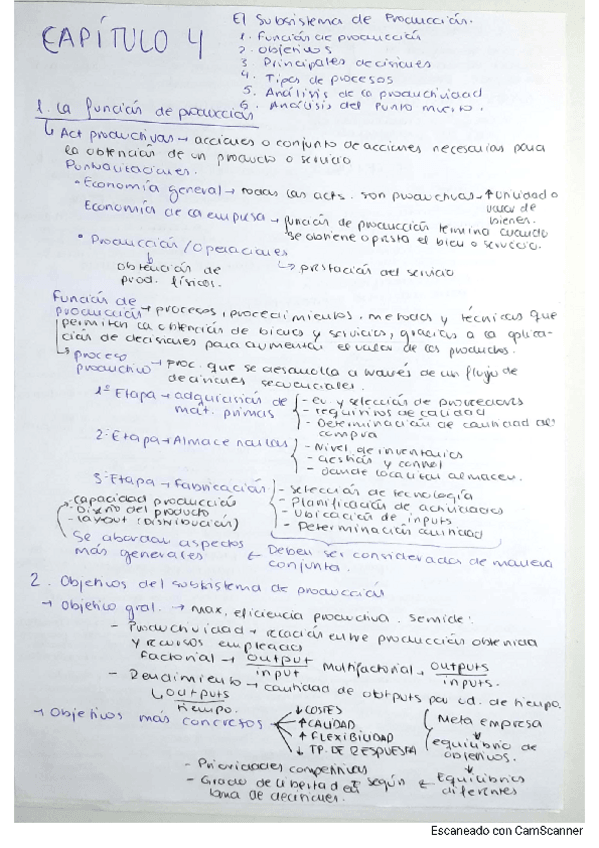 CAPÍTULO 4
El Subsistema de Producción.
1. Función de producción
2. Objetivos
3. Principales decisiones
4. Tipos de procesos
5. Análisis de la productividad
6. Análisis del Punto muerto.
1. La función de producción
Act productivas → acciones o conjunto de acciones necesarias para
la obtención de un producto o servicio
Puntualizaciones.
• Economía general → todas las acts. son productivas → ↑ utilidad o
valor de
bienes.
Economía de la empresa → función de producción termina cuando
se obtiene o presta el bien o servicio.
• Producción / Operaciones
obtención de
prod. físicos.
→ prestación del servicio
Función de
producción → procesos, procedimientos, métodos y técnicas que
permiten la obtención de bienes y servicios, gracias a la aplica-
ción de decisiones para aumentar el valor de los productos.
proceso
productivo → proc. que se desarrolla a través de un flujo de
decisiones secuenciales.
1ª Etapa → adquisición de
mat. primas
- ev. y selección de proveedores
- requisitos de calidad
- Determinación de cantidad de
compra
2ª Etapa → Almacenarlas
- Nivel de inventarios
- Gestión y control
- donde localizar almacen.
3ª Etapa → Fabricación
- Selección de tecnología
- Planificación de actividades
- Ubicación de inputs
- Determinación cantidad
- capacidad producción
- Diseño del producto
- layout (DISTRIBUCIÓN)
Se abordan aspectos
más generales
← Deben ser considerados de manera
conjunta.
2. Objetivos del subsistema de producción
→ Objetivo gral. → max. eficiencia productiva. Se mide:
- Productividad → relación entre producción obtenida
y recursos empleados
Factorial → output / input Multifactorial → outputs / inputs.
- Rendimiento → cantidad de outputs por ud. de tiempo.
outputs / tiempo.
→ Objetivos más concretos
↓ COSTES
↑ CALIDAD
↑ FLEXIBILIDAD
↓ TP. DE RESPUESTA
Meta empresa
equilibrio de
objetivos.
- Prioridades competitivas
- Grado de libertad en
toma de decisiones.
según ← Equilibrios
diferentes
Escaneado con CamScanner